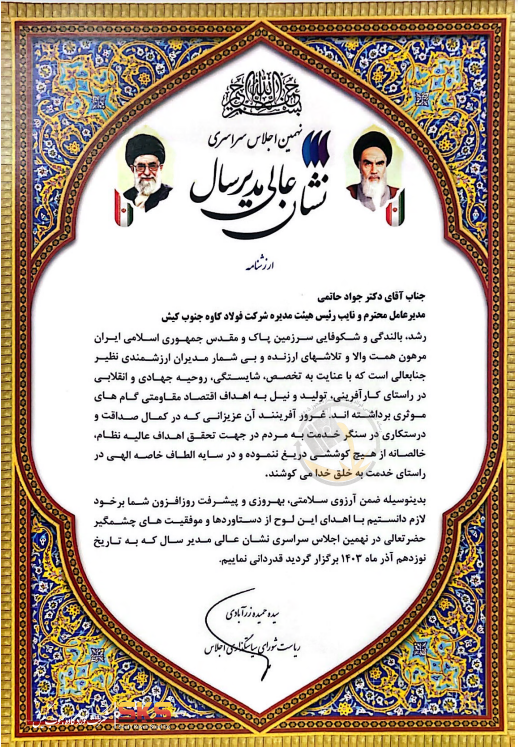 بسم الله الرحمن الرحیم
نهمین اجلاس سراسری
نشان عالی مدیر سال
ارزشنامه
جناب آقای دکتر جواد حاتمی
مدیرعامل محترم و نایب رئیس هیئت مدیره شرکت فولاد کاوه جنوب کیش
رشد، بالندگی و شکوفایی سرزمین پاک و مقدس جمهوری اسلامی ایران
مرهون همت والا و تلاشهای ارزنده و بی شمار مدیران ارزشمندی نظیر
جنابعالی است که با عنایت به تخصص، شایستگی، روحیه جهادی و انقلابی
در راستای کارآفرینی، تولید و نیل به اهداف اقتصاد مقاومتی گام های
موثری برداشته اند. غرور آفرینند آن عزیزانی که در کمال صداقت و
درستکاری در سنگر خدمت به مردم در جهت تحقق اهداف عالیه نظام،
خالصانه از هیچ کوششی دریغ ننموده و در سایه الطاف خاصه الهی در
راستای خدمت به خلق خدا می کوشند.
بدینوسیله ضمن آرزوی سلامتی، بهروزی و پیشرفت روزافزون شما برخود
لازم دانستیم با اهدای این لوح از دستاوردها و موفقیت های چشمگیر
حضرتعالی در نهمین اجلاس سراسری نشان عالی مدیر سال که به تاریخ
نوزدهم آذر ماه ۱۴۰۳ برگزار گردید قدردانی نماییم.
سیده حمیده زرآبادی
ریاست شورای سیاستگذاری اجلاس
SKS